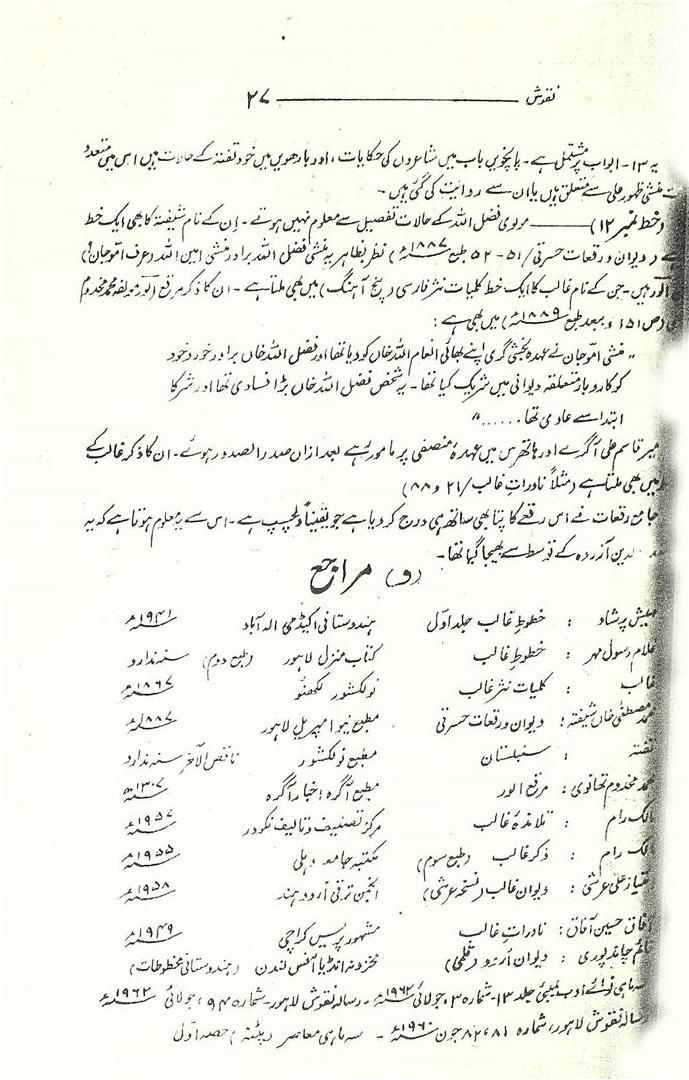 نقوش ۲۷
یہ ۱۳- ابواب پر مشتمل ہے۔ پانچویں باب میں شاعروں کی حکایات ، اور بارھویں میں خود تفتہ کے حالات ہیں اس میں متعدد
منشی ظہور علی سے متعلق ہیں یا ان سے روایت کی گئی ہیں۔
(خط نمبر ۱۲) ــــــ مولوی فضل اللہ کے حالات تفصیل سے معلوم نہیں ہوتے۔ اِن کے نام شیفتہ کا بھی ایک خط
(دیوان و رقعات حسرتی / ۵۱ - ۵۲ طبع ۱۸۸۷ء) نظر بظاہر یہ منشی فضل اللہ برادر منشی امین اللہ (عرف اموجان)
ہیں۔ جن کے نام غالب کا ایک خط کلیات نثر فارسی (پنج آہنگ) میں بھی ملتا ہے۔ ان کا ذکر مرقع الور مولفہ محمد مخدوم
(ص ۱۵۱ و بعد طبع ۱۸۸۹ء) میں بھی ہے :
" منشی اموجان نے عہدہ بخشی گری اپنے بھائی انعام اللہ خاں کو دیا تھا اور فضل اللہ خاں برادر خورد خود
کو کاروبار متعلقہ دیوانی میں شریک کیا تھا۔ یہ شخص فضل اللہ خاں بڑا فسادی تھا اور شر کا
ابتدا سے عادی تھا ......"
میر قاسم علی آگرے اور ہاتھرس میں عہدۂ منصفی پر مامور رہے بعد ازاں صدر الصدور ہوئے۔ ان کا ذکر غالب کے
میں بھی ملتا ہے (مثلاً نادرات غالب / ۲۱ و ۸۸)
جامع رقعات نے اس رقعے کا پتا بھی ساتھ ہی درج کر دیا ہے جو یقیناً دلچسپ ہے۔ اس سے یہ معلوم ہوتا ہے کہ یہ
الدین آزردہ کے توسط سے بھیجا گیا تھا۔
(و) مراجع
مہیش پرشاد : خطوطِ غالب جلد اوّل ہندوستانی اکیڈمی الہ آباد ۱۹۴۱ء
غلام رسول مہر : خطوطِ غالب کتاب منزل لاہور (طبع دوم) سنہ ندارد
غالب : کلیات نثر غالب نولکشور لکھنؤ ۱۸۶۷ء
محمد مصطفیٰ خاں شیفتہ : دیوان و رقعات حسرتی مطبع نیو امپریل لاہور ۱۸۸۷ء
تفتہ : سنبلستان مطبع نولکشور ناقص الآخر سنہ ندارد
محمد مخدوم تھانوی : مرقع الور مطبع آگرہ اخبار آگرہ ۱۳۰۷ھ
مالک رام : تلامذۂ غالب مرکز تصنیف و تالیف نکودر ۱۹۵۷ء
مالک رام : ذکر غالب (طبع سوم) مکتبہ جامعہ دہلی ۱۹۵۵ء
امتیاز علی عرشی : دیوان غالب (نسخہ عرشی) انجمن ترقی اردو ہند ۱۹۵۸ء
آفاق حسین آفاق : نادرات غالب مشہور پریس کراچی ۱۹۴۹ء
قائم چاندپوری : دیوان اُردو (قلمی) مخزونہ انڈیا آفس لندن (ہندوستانی مخطوطات)
سہ ماہی نوائے ادب بمبئی جلد ۱۳- شمارہ ۳، جولائی ۱۹۶۲ء - رسالہ نقوش لاہور - شمارہ ۹۴، جولائی ۱۹۶۲ء
رسالہ نقوش لاہور، شمارہ ۸۱، ۸۲ جون ۱۹۶۰ء - سہ ماہی معاصر (پٹنہ) حصہ اوّل